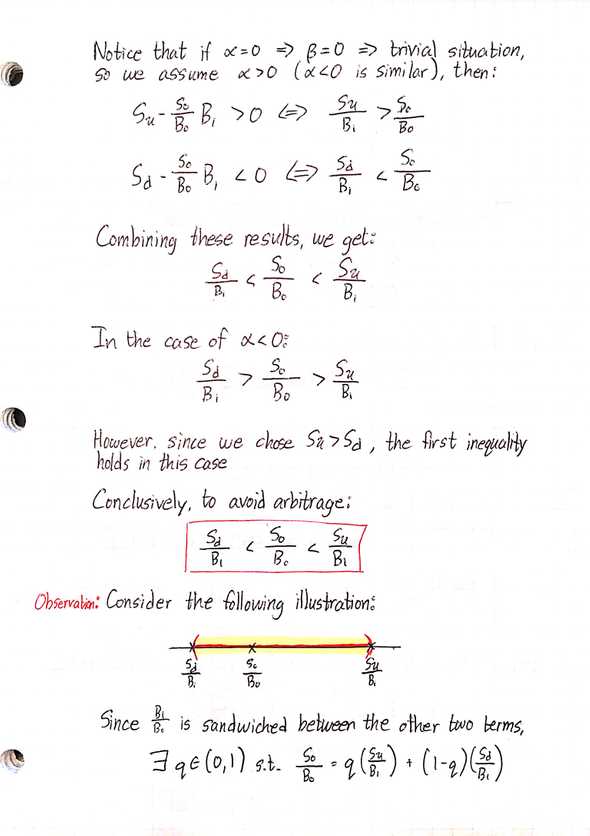 Notice that if α=0 => β=0 => trivial situation,
so we assume α>0 (α<0 is similar), then:
Su - S₀/B₀ B₁ > 0 <=> Su/B₁ > S₀/B₀
Sd - S₀/B₀ B₁ < 0 <=> Sd/B₁ < S₀/B₀
Combining these results, we get:
Sd/B₁ < S₀/B₀ < Su/B₁
In the case of α<0:
Sd/B₁ > S₀/B₀ > Su/B₁
However, since we chose Su>Sd, the first inequality
holds in this case
Conclusively, to avoid arbitrage:
Sd/B₁ < S₀/B₀ < Su/B₁
Observation: Consider the following illustration:
Sd/B₁ S₀/B₀ Su/B₁
Since B₁/B₀ is sandwiched between the other two terms,
∃ q∈(0,1) s.t. S₀/B₀ = q(Su/B₁) + (1-q)(Sd/B₁)